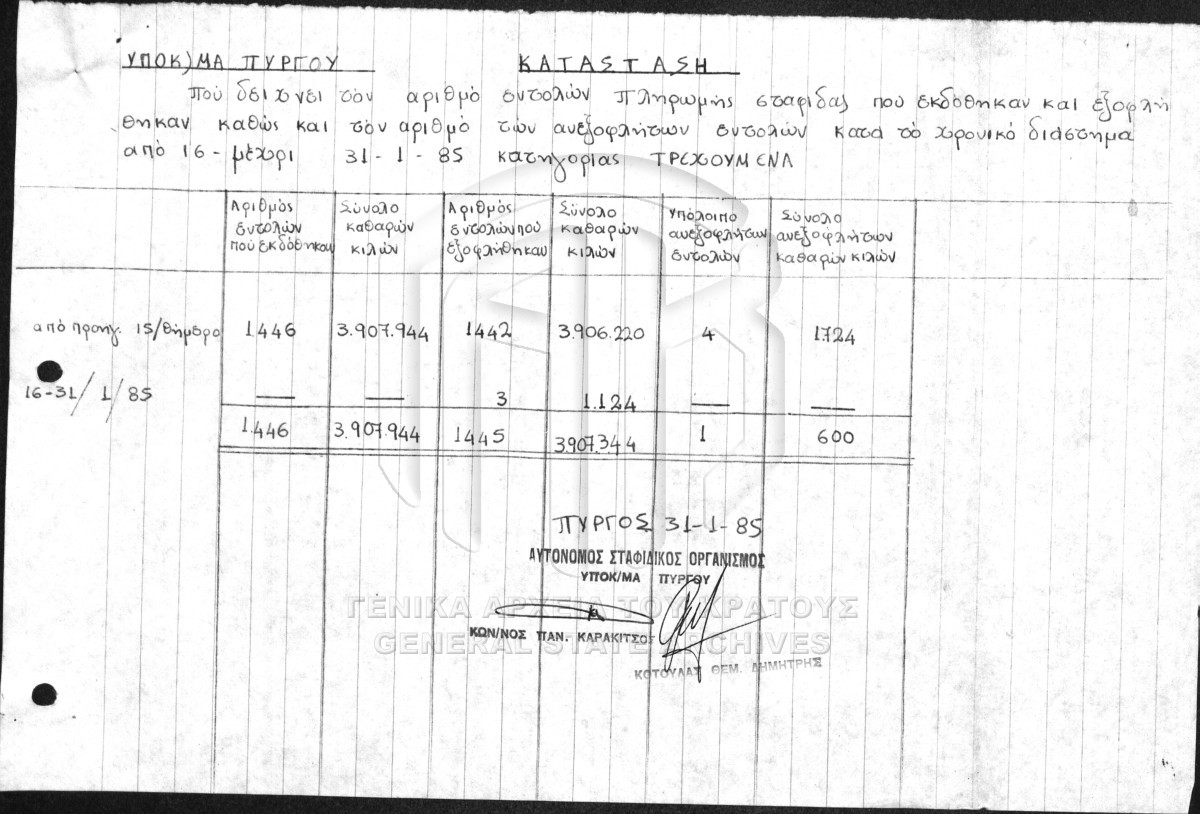 ΥΠΟΚ)ΜΑ ΠΥΡΓΟΥ ΚΑΤΑΣΤΑΣΗ
Πού δείχνει τόν αριθμό εντολών Πληρωμής σταφίδας πού εκδόθηκαν και εξοφλή
θηκαν καθώς και τόν αριθμό τών ανεξοφλήτων εντολών κατά τό χρονικό διάστημα
από 16 - μέχρι 31-1-85 κατηγορίας ΤΡΕΧΟΥΜΕΝΑ
Αριθμός εντολών πού εκδόθηκαν
Σύνολο καθαρών κιλών
Αριθμός εντολών πού εξοφλήθηκαν
Σύνολο καθαρών κιλών
Υπόλοιπο ανεξοφλήτων εντολών
Σύνολο ανεξοφλήτων καθαρών κιλών
από προηγ. 15/θήμερο 1.446 3.907.944 1442 3.906.220 4 1.724
16-31/1/85 — — 3 1.124 — —
1.446 3.907.944 1445 3.907.344 1 600
ΠΥΡΓΟΣ 31-1-85
ΑΥΤΟΝΟΜΟΣ ΣΤΑΦΙΔΙΚΟΣ ΟΡΓΑΝΙΣΜΟΣ
ΥΠΟΚ/ΜΑ ΠΥΡΓΟΥ
ΓΕΝΙΚΑ ΑΡΧΕΙΑ ΤΟΥ ΚΡΑΤΟΥΣ
ΚΩΝ/ΝΟΣ ΠΑΝ. ΚΑΡΑΚΙΤΣΟΣ
GENERAL STATE ARCHIVES
ΚΟΤΟΥΛΑΣ ΘΕΜ. ΔΗΜΗΤΡΗΣ